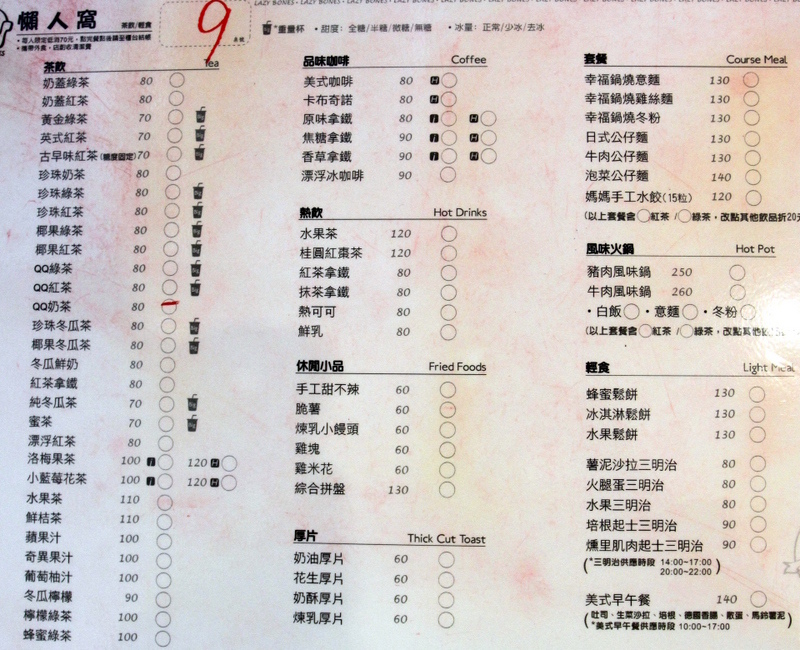 LAZY BONES
懶人窩 茶飲/輕食
*每人限定低消70元，點完餐點後請至櫃台結帳
*攜帶外食，店酌收清潔費
9
*重量杯 •甜度：全糖/半糖/微糖/無糖 •冰量：正常/少冰/去冰
茶飲 Tea
奶蓋綠茶 80
奶蓋紅茶 80
黃金綠茶 70
英式紅茶 70
古早味紅茶(糖度固定) 70
珍珠奶茶 80
珍珠綠茶 80
珍珠紅茶 80
椰果綠茶 80
椰果紅茶 80
QQ綠茶 80
QQ紅茶 80
QQ奶茶 80
珍珠冬瓜茶 80
椰果冬瓜茶 80
冬瓜鮮奶 80
紅茶拿鐵 80
純冬瓜茶 70
蜜茶 70
漂浮紅茶 80
洛梅果茶 100 I 120 H
小藍莓花茶 100 I 120 H
水果茶 110
鮮桔茶 110
蘋果汁 100
奇異果汁 100
葡萄柚汁 100
冬瓜檸檬 90
檸檬綠茶 100
蜂蜜綠茶 100
品味咖啡 Coffee
美式咖啡 80 H
卡布奇諾 80 H
原味拿鐵 80 I H
焦糖拿鐵 90 I H
香草拿鐵 90 I H
漂浮冰咖啡 90
熱飲 Hot Drinks
水果茶 120
桂圓紅棗茶 120
紅茶拿鐵 80
抹茶拿鐵 80
熱可可 80
鮮乳 80
休閒小品 Fried Foods
手工甜不辣 60
脆薯 60
煉乳小饅頭 60
雞塊 60
雞米花 60
綜合拼盤 130
厚片 Thick Cut Toast
奶油厚片 60
花生厚片 60
奶酥厚片 60
煉乳厚片 60
套餐 Course Meal
幸福鍋燒意麵 130
幸福鍋燒雞絲麵 130
幸福鍋燒冬粉 130
日式公仔麵 130
牛肉公仔麵 130
泡菜公仔麵 140
媽媽手工水餃(15粒) 120
(以上套餐含○紅茶 /○綠茶，改點其他飲品折20元
風味火鍋 Hot Pot
豬肉風味鍋 250
牛肉風味鍋 260
•白飯○ •意麵○ •冬粉○
(以上套餐含○紅茶 /○綠茶，改點其他飲
輕食 Light Meal
蜂蜜鬆餅 130
冰淇淋鬆餅 130
水果鬆餅 130
薯泥沙拉三明治 80
火腿蛋三明治 80
水果三明治 80
培根起士三明治 90
燻里肌肉起士三明治 90
(*三明治供應時段 14:00~17:00
20:00~22:00)
美式早午餐 140
(吐司、生菜沙拉、培根、德國香腸、散蛋、馬鈴薯泥
*美式早午餐供應時段 10:00~17:00)